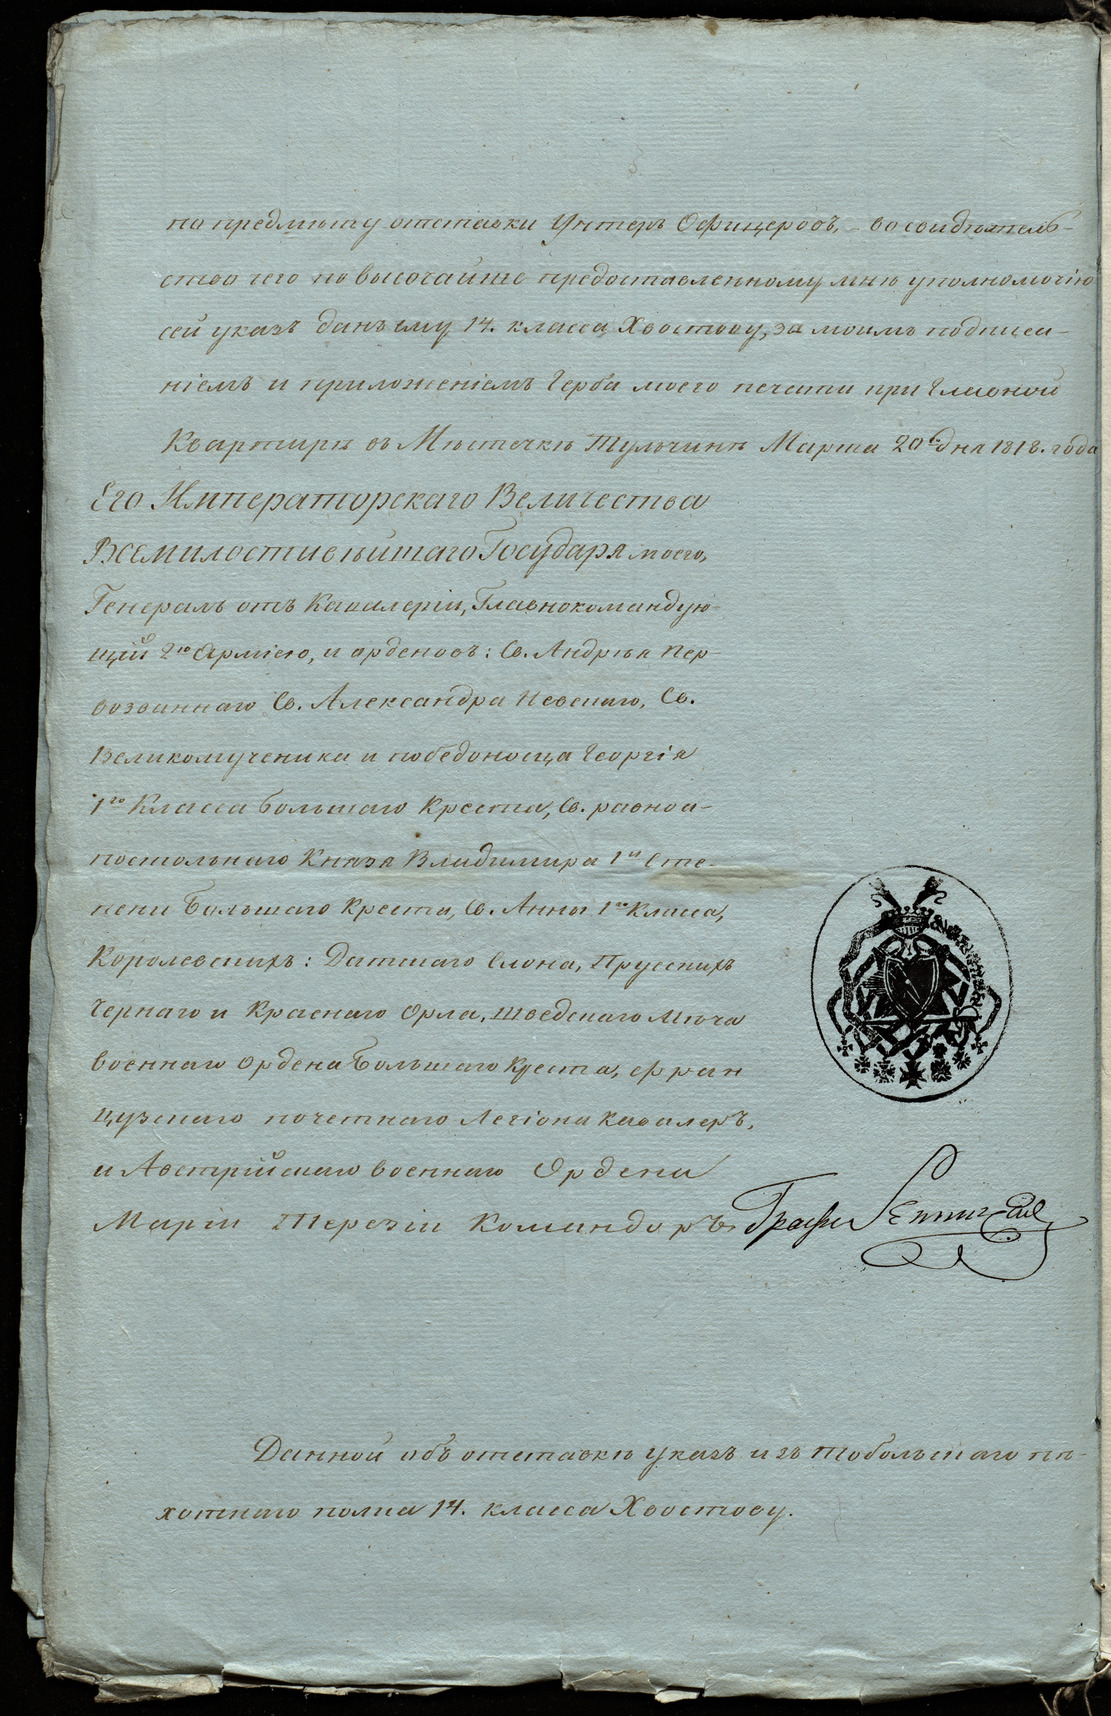 по предмѣту отставки Унтеръ Офицеровъ, – во свидѣтель-
ство чего по высочайше предоставленному мнѣ уполномочію
сей указъ данъ ему 14. класса Хвостову, за моимъ подписа-
ніемъ и приложеніемъ Герба моего печати при Главной
Квартирѣ въ Мѣстечкѣ Тульчинѣ Марта 20го дня 1818. года
Его Императорскаго Величества
Всемилостивѣйшаго Государя моего,
Генералъ отъ Кавалеріи, Главнокомандую-
щій 2ю Арміею, и орденовъ: Св. Андрѣя Пер-
возваннаго Св. Александра Невскаго, Св.
Великомученика и победоносца Георгія
1го Класса большаго Креста, Св. равноа-
постольнаго Князя Владимира 1й Сте-
пени Большаго Креста, Св. Анны 1го Класса,
Королевскихъ: Датскаго Слона, Прусскихъ
Чернаго и Краснаго Орла, Шведскаго Мѣча
военнаго Ордена Большаго Креста, Фран
цузскаго почетнаго Легіона Кавалеръ,
и Австрійскаго военнаго Ордена
Маріи Терезіи Командоръ Графъ Бенингсенъ
Данной объ отставкѣ указъ изъ Тобольскаго пѣ-
хотнаго полка 14. класса Хвостову.